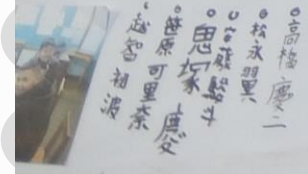 高橋 慶二
松永 翼
安藤 駿斗
鬼塚 慶
笹原 可里奈
越智 裕渡